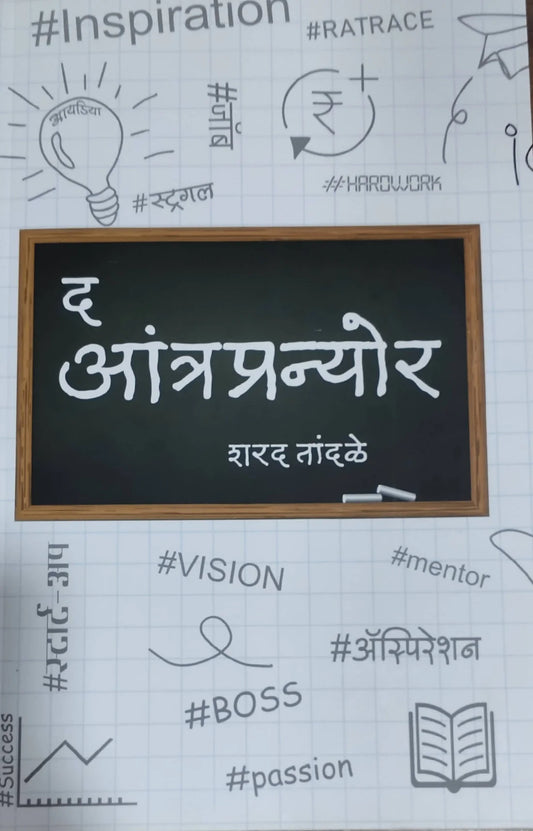 #Inspiration
#RATRACE
आयडिया
#जॉब
₹
#स्ट्रगल
#HARDWORK
द
आंत्रप्रन्योर
शरद तांदळे
#स्टार्ट-अप
#VISION
#mentor
#ॲस्पिरेशन
#BOSS
#Success
#passion